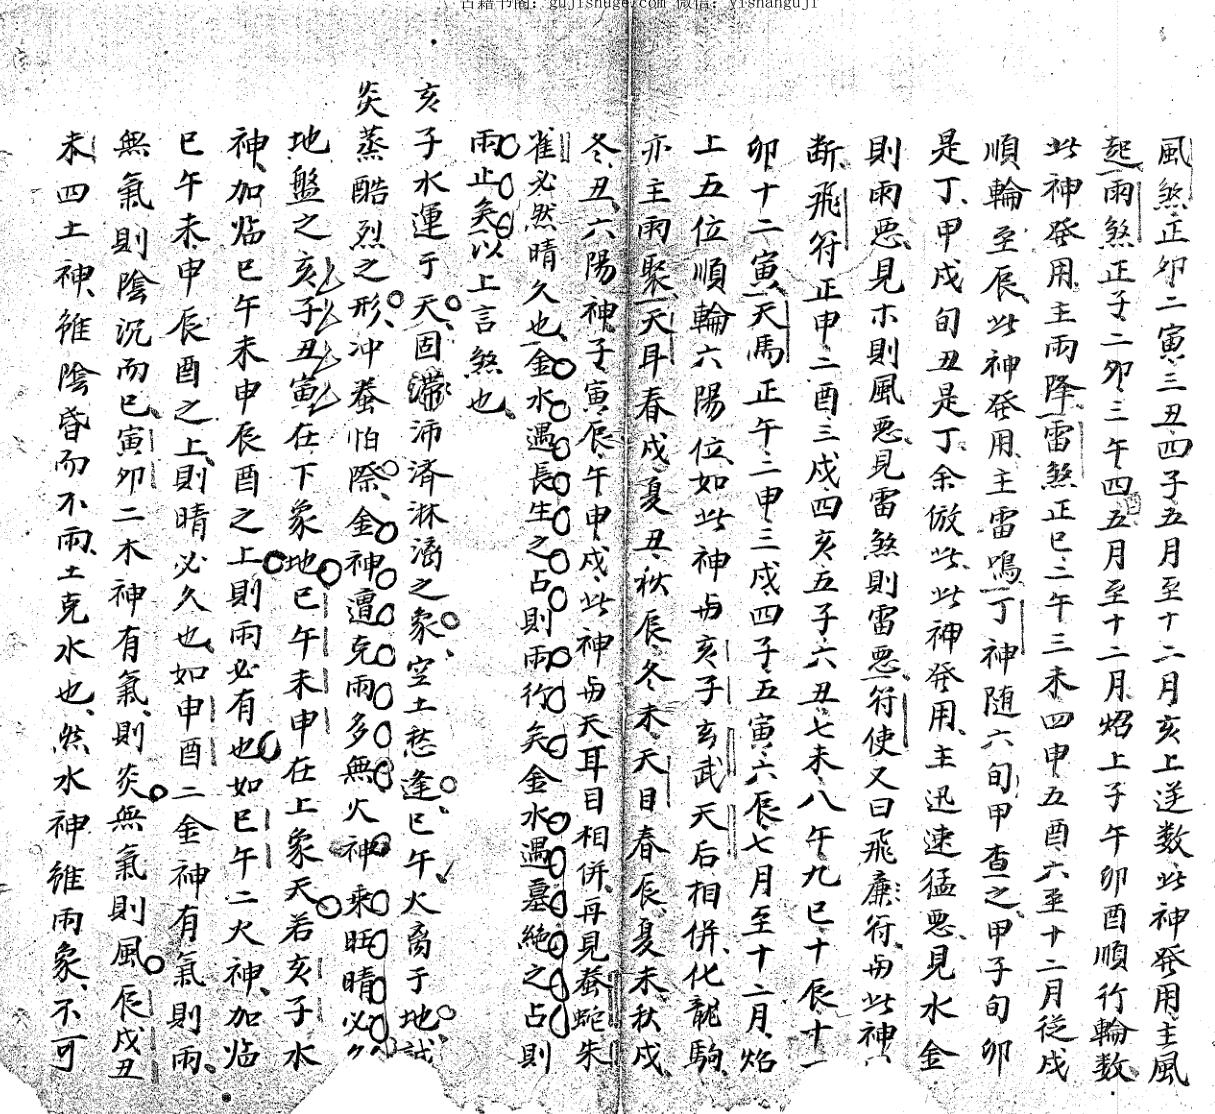 古籍书阁：gujishuge.com 微信：yishanguji
風煞正卯二寅三丑四子五月至十二月亥上逆数此神発用主風
起雨煞正子二卯三午四五月至十二月焰上子午卯酉順行輪数
此神発用主雨降雷煞正巳二午三未四申五酉六至十二月從戌
順輪至辰此神発用主雷鳴丁神随六旬甲查之甲子旬卯
是丁甲戌旬丑是丁余倣此此神発用主迅速猛悪見水金
則雨悪見木則風悪見雷煞則雷悪符使又曰飛廉符与此神
断飛符正申二酉三戌四亥五子六丑七未八午九巳十辰十一
卯十二寅天馬正午二申三戌四子五寅六辰七月至十二月焰
上五位順輪六陽位如此神与亥子玄武天后相併化龍駒
亦主雨聚天耳春戌夏丑秋辰冬未天目春辰夏未秋戌
冬丑六陽神子寅辰午申戌此神与天耳目相併再見螣蛇朱
雀必然晴久也金水遇長生之占則雨行矣金水遇墓絶之占則
雨止矣以上言煞也
亥子水運于天固滞沛済淋滷之象空土愁逢巳午火离于地試
炎蒸酷烈之形冲螣怕際金神遭克雨多無火神乗旺晴必久
地盤之亥子丑寅在下象地巳午未申在上象天若亥子水
神加临巳午未申辰酉之上則雨必有也如巳午二火神加临
巳午未申辰酉之上則晴必久也如申酉二金神有氣則雨
無氣則陰沉而已寅卯二木神有氣則炎無氣則風辰戌丑
未四土神雖陰昏而不雨土克水也然水神雖雨象不可